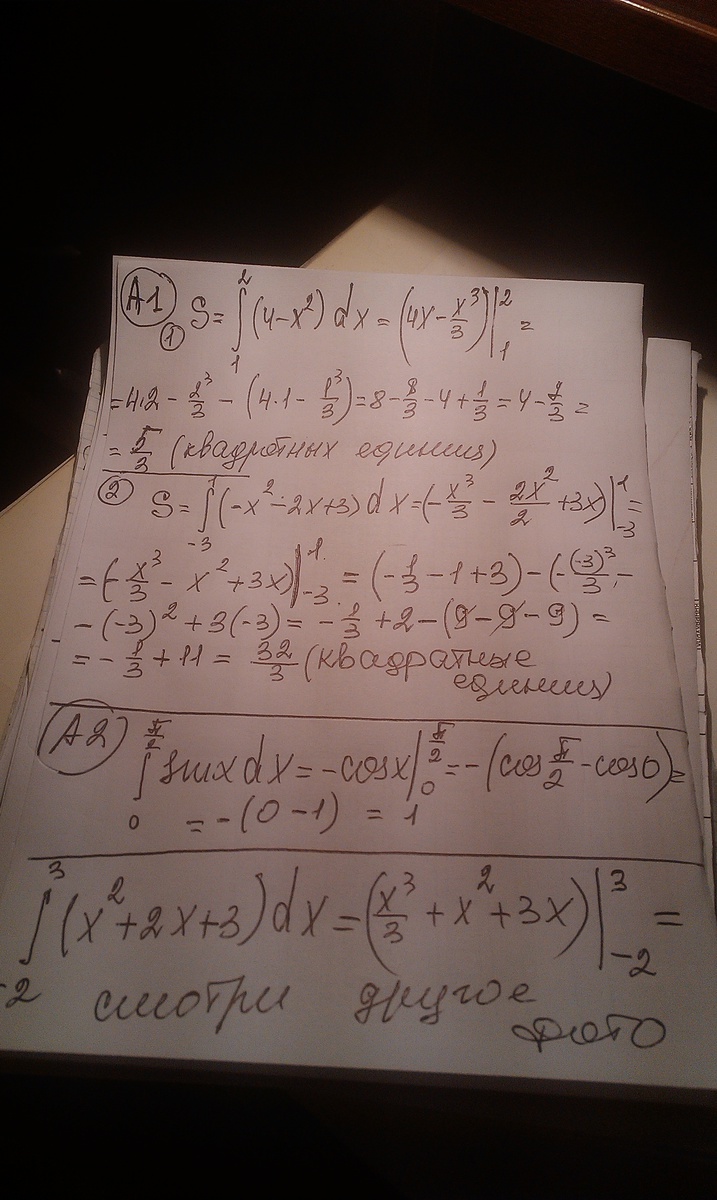 A1
① S = ∫₁² (4 − x²) dx = (4x − x³/3) |₁² =
= 4·2 − 2³/3 − (4·1 − 1³/3) = 8 − 8/3 − 4 + 1/3 = 4 − 7/3 =
= 5/3 (квадратных единиц)
② S = ∫₋₃¹ (−x² − 2x + 3) dx = (−x³/3 − 2x²/2 + 3x) |₋₃¹ =
= (−x³/3 − x² + 3x) |₋₃¹ = (−1/3 − 1 + 3) − (−(−3)³/3 −
− (−3)² + 3(−3) = −1/3 + 2 − (9 − 9 − 9) =
= −1/3 + 11 = 32/3 (квадратные
единиц)
A2
∫₀^(π/2) sinx dx = −cosx |₀^(π/2) = −(cos π/2 − cos0) =
= −(0 − 1) = 1
∫₋₂³ (x² + 2x + 3) dx = (x³/3 + x² + 3x) |₋₂³ =
смотри другое
фото